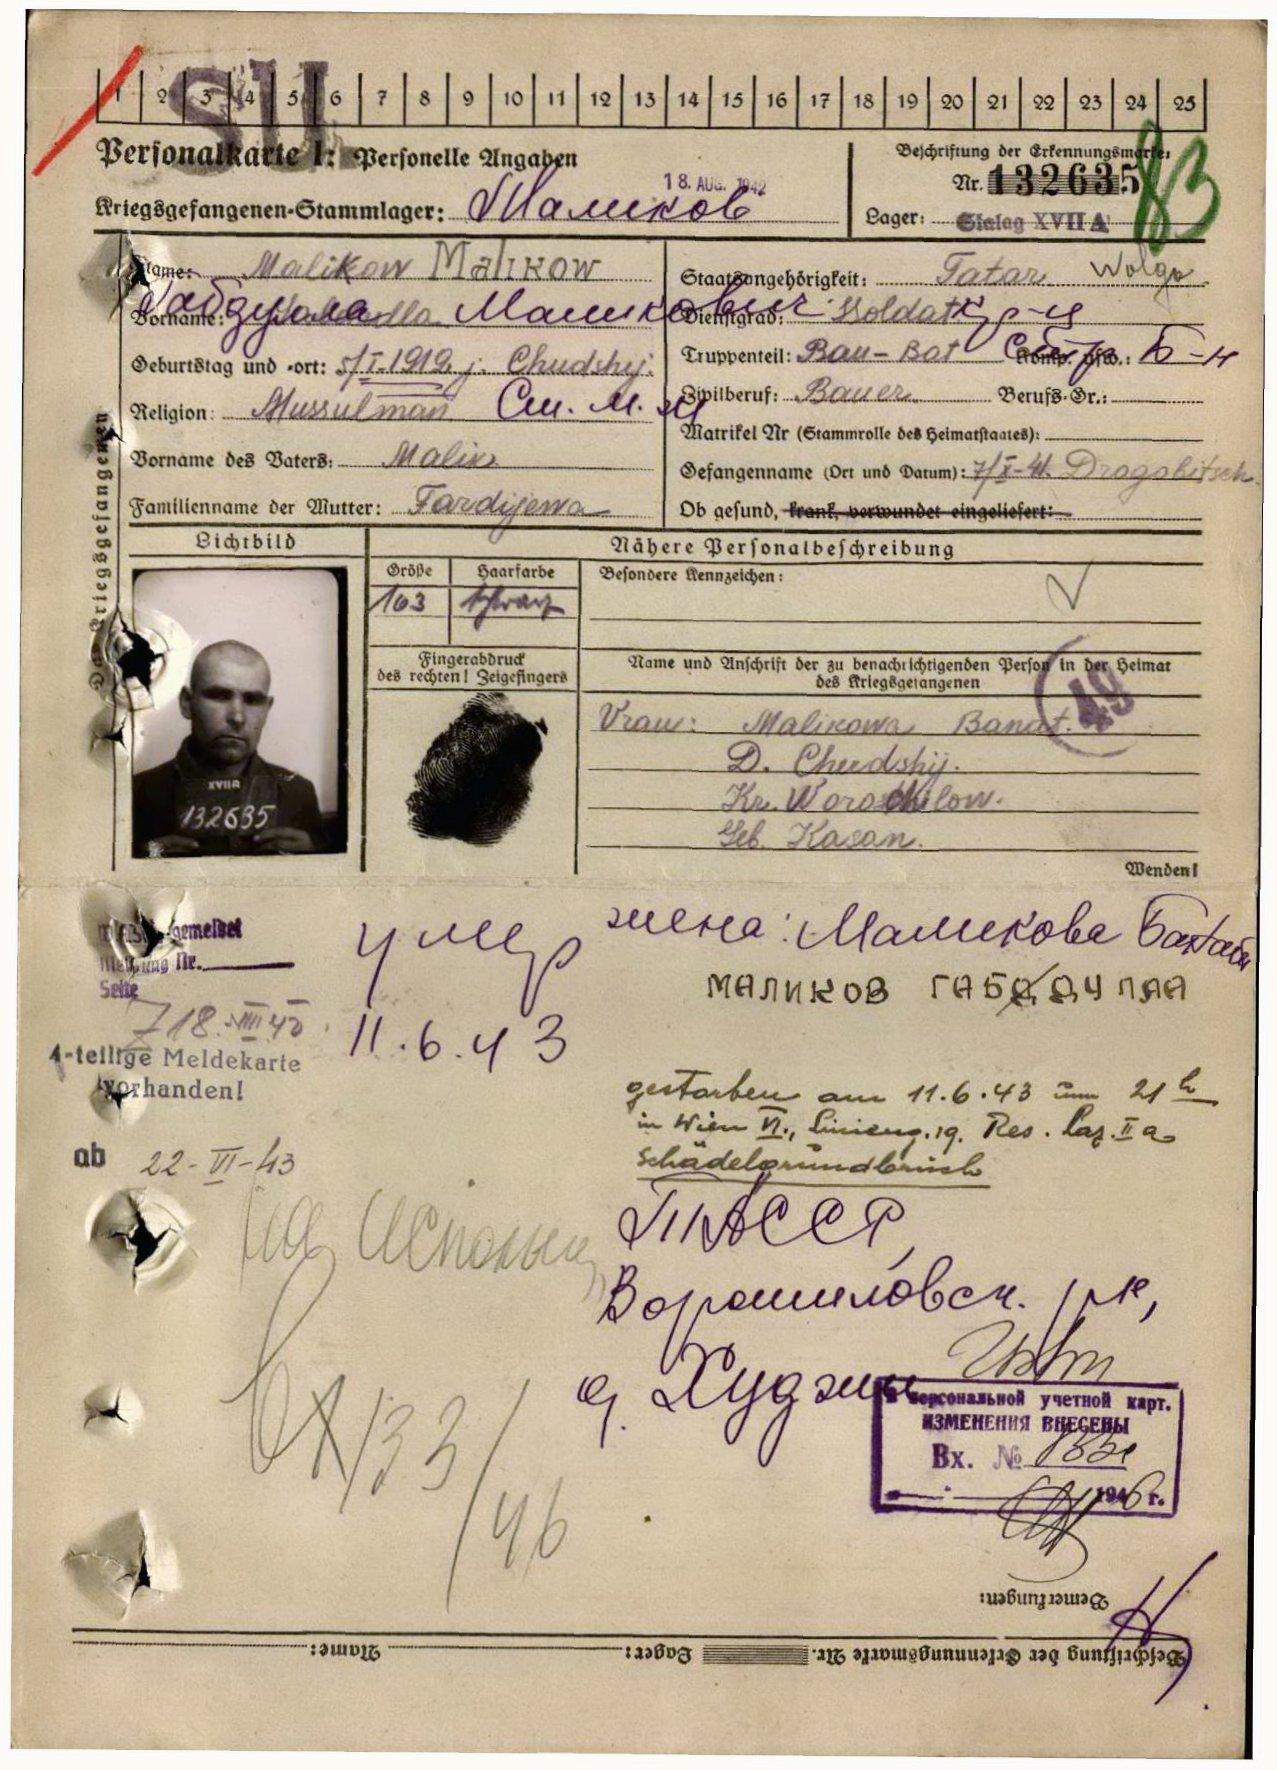 1 2 3 4 5 6 7 8 9 10 11 12 13 14 15 16 17 18 19 20 21 22 23 24 25
SU
Personalkarte I: Personelle Angaben
Beschriftung der Erkennungsmarke:
Nr. 132635
83
18. AUG. 1942
Kriegsgefangenen-Stammlager: Маликов
Lager: Stalag XVII A
Name: Malikow MALIKOW
Staatsangehörigkeit: Tatar Wolga
Vorname: Габдулла Маликович
Dienstgrad: Soldat кр-ц
Geburtstag und -ort: 5/I.1919. j. Chudshij.
Truppenteil: Bau-Bat Стр. Б-н
Religion: Mussulman
Zivilberuf: Bauer Berufs-Gr.:
Matrikel Nr (Stammrolle des Heimatstaates):
Vorname des Vaters: Malik
Gefangenname (Ort und Datum): 7/X-41. Dragobitsch.
Familienname der Mutter: Fardijewa
Ob gesund, krank, verwundet eingeliefert:
Des Kriegsgefangenen
Lichtbild
Nähere Personalbeschreibung
Größe Haarfarbe
Besondere Kennzeichen:
163 schwarz
Fingerabdruck
des rechten! Zeigefingers
Name und Anschrift der zu benachrichtigenden Person in der Heimat
des Kriegsgefangenen
49
Vrau: Malikowa Banat.
D. Chudshij.
Kr. Woroschilow.
Geb. Kasan.
XVIIA
132635
Wenden!
gemeldet
Meldung Nr.
Seite
4-teilige Meldekarte
vorhanden!
умер
11.6.43
жена: Маликова
МАЛИКОВ ГАБДУЛЛА
gestorben am 11.6.43 um 21 h
in Wien VI., Linieng. 19. Res. Laz. II a
Schädelgrundbruch
ab 22-VI-43
ТАССР,
Ворошиловск. р-н,
д. Худжин
Вх/33/46
В персональной учетной карт.
ИЗМЕНЕНИЯ ВНЕСЕНЫ
Вх. №
1946 г.
Bemerkungen:
Name: Lager: Beschriftung der Erkennungsmarke Nr.